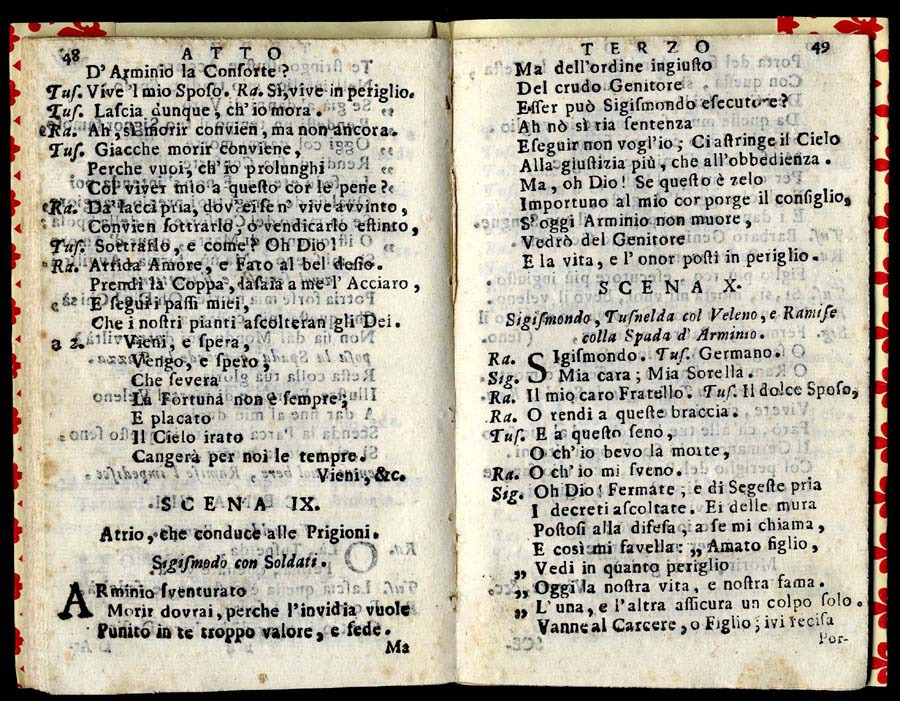 48 ATTO
D' Arminio la Conſorte?
Tuſ. Vive 'l mio Spoſo. Ra. Sì, vive in periglio.
Tuſ. Laſcia dunque, ch' io mora.
Ra. Ah, sì morir convien, ma non ancora.
Tuſ. Giacche morir conviene,
Perche vuoi, ch' io prolunghi
Col viver mio a queſto cor le pene?
Ra. Da' lacci pria, dov' ei ſen' vive avvinto,
Convien ſottrarlo, o vendicarlo eſtinto,
Tuſ. Sottrarlo, e come? Oh Dio!
Ra. Arrida Amore, e Fato al bel deſio.
Prendi la Coppa, laſcia a me l' Acciaro,
E ſegui i paſſi miei,
Che i noſtri pianti aſcolteran gli Dei.
a 2. Vieni, e ſpera,
Vengo, e ſpero,
Che ſevera
La Fortuna non è ſempre;
E placato
Il Cielo irato
Cangerà per noi le tempre.
Vieni, &c.
SCENA IX.
Atrio, che conduce alle Prigioni.
Sigiſmodo con Soldati.
ARminio ſventurato
Morir dovrai, perche l' invidia vuole
Punito in te troppo valore, e fede.
Ma
TERZO 49
Ma dell' ordine ingiuſto
Del crudo Genitore
Eſſer può Sigiſmondo eſecutore?
Ah nò sì ria ſentenza
Eſeguir non vogl' io; Ci aſtringe il Cielo
Alla giuſtizia più, che all' obbedienza.
Ma, oh Dio! Se queſto è zelo
Importuno al mio cor porge il conſiglio,
S' oggi Arminio non muore,
Vedrò del Genitore
E la vita, e l' onor poſti in periglio.
SCENA X.
Sigiſmondo, Tuſnelda col Veleno, e Ramiſe
colla Spada d' Arminio.
Ra. SIgiſmondo. Tuſ. Germano.
Sig. Mia cara; Mia Sorella.
Ra. Il mio caro Fratello. Tuſ. Il dolce Spoſo,
Ra. O rendi a queſte braccia.
Tuſ. E a queſto ſeno,
O ch' io bevo la morte,
Ra. O ch' io mi ſveno.
Sig. Oh Dio! Fermate, e di Segeſte pria
I decreti aſcoltate. Ei delle mura
Poſtoſi alla difeſa, a ſe mi chiama,
E così mi favella: „ Amato figlio,
„ Vedi in quanto periglio
„ Oggi la noſtra vita, e noſtra fama.
„ L' una, e l' altra aſſicura un colpo ſolo.
Vanne al Carcere, o Figlio; ivi reciſa
Por-